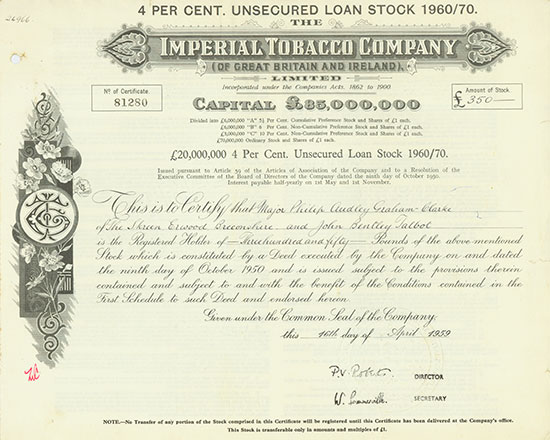 4 PER CENT. UNSECURED LOAN STOCK 1960/70.
26966
THE
IMPERIAL TOBACCO COMPANY
(OF GREAT BRITAIN AND IRELAND),
LIMITED
Incorporated under the Companies Acts, 1862 to 1900
No of Certificate
81280
Amount of Stock.
£350—
CAPITAL £85,000,000
Divided into £6,000,000 "A" 5½ Per Cent. Cumulative Preference Stock and Shares of £1 each.
£6,000,000 "B" 6 Per Cent. Non-Cumulative Preference Stock and Shares of £1 each.
£3,000,000 "C" 10 Per Cent. Non-Cumulative Preference Stock and Shares of £1 each.
£70,000,000 Ordinary Stock and Shares of £1 each.
£20,000,000 4 Per Cent. Unsecured Loan Stock 1960/70.
Issued pursuant to Article 59 of the Articles of Association of the Company and to a Resolution of the
Executive Committee of the Board of Directors of the Company dated the ninth day of October 1950.
Interest payable half-yearly on 1st May and 1st November.
This is to Certify that Major Philip Audley Graham-Clarke
of The Skreen Erwood Breconshire and John Bentley Talbot
is the Registered Holder of — Three hundred and fifty — Pounds of the above mentioned
Stock which is constituted by a Deed executed by the Company on and dated
the ninth day of October 1950 and is issued subject to the provisions therein
contained and subject to and with the benefit of the Conditions contained in the
First Schedule to such Deed and endorsed hereon.
Given under the Common Seal of the Company.
this 16th day of April 1959
P.V. Roberts DIRECTOR
W. Sommerville SECRETARY
NOTE.—No Transfer of any portion of the Stock comprised in this Certificate will be registered until this Certificate has been delivered at the Company's office.
This Stock is transferable only in amounts and multiples of £1.